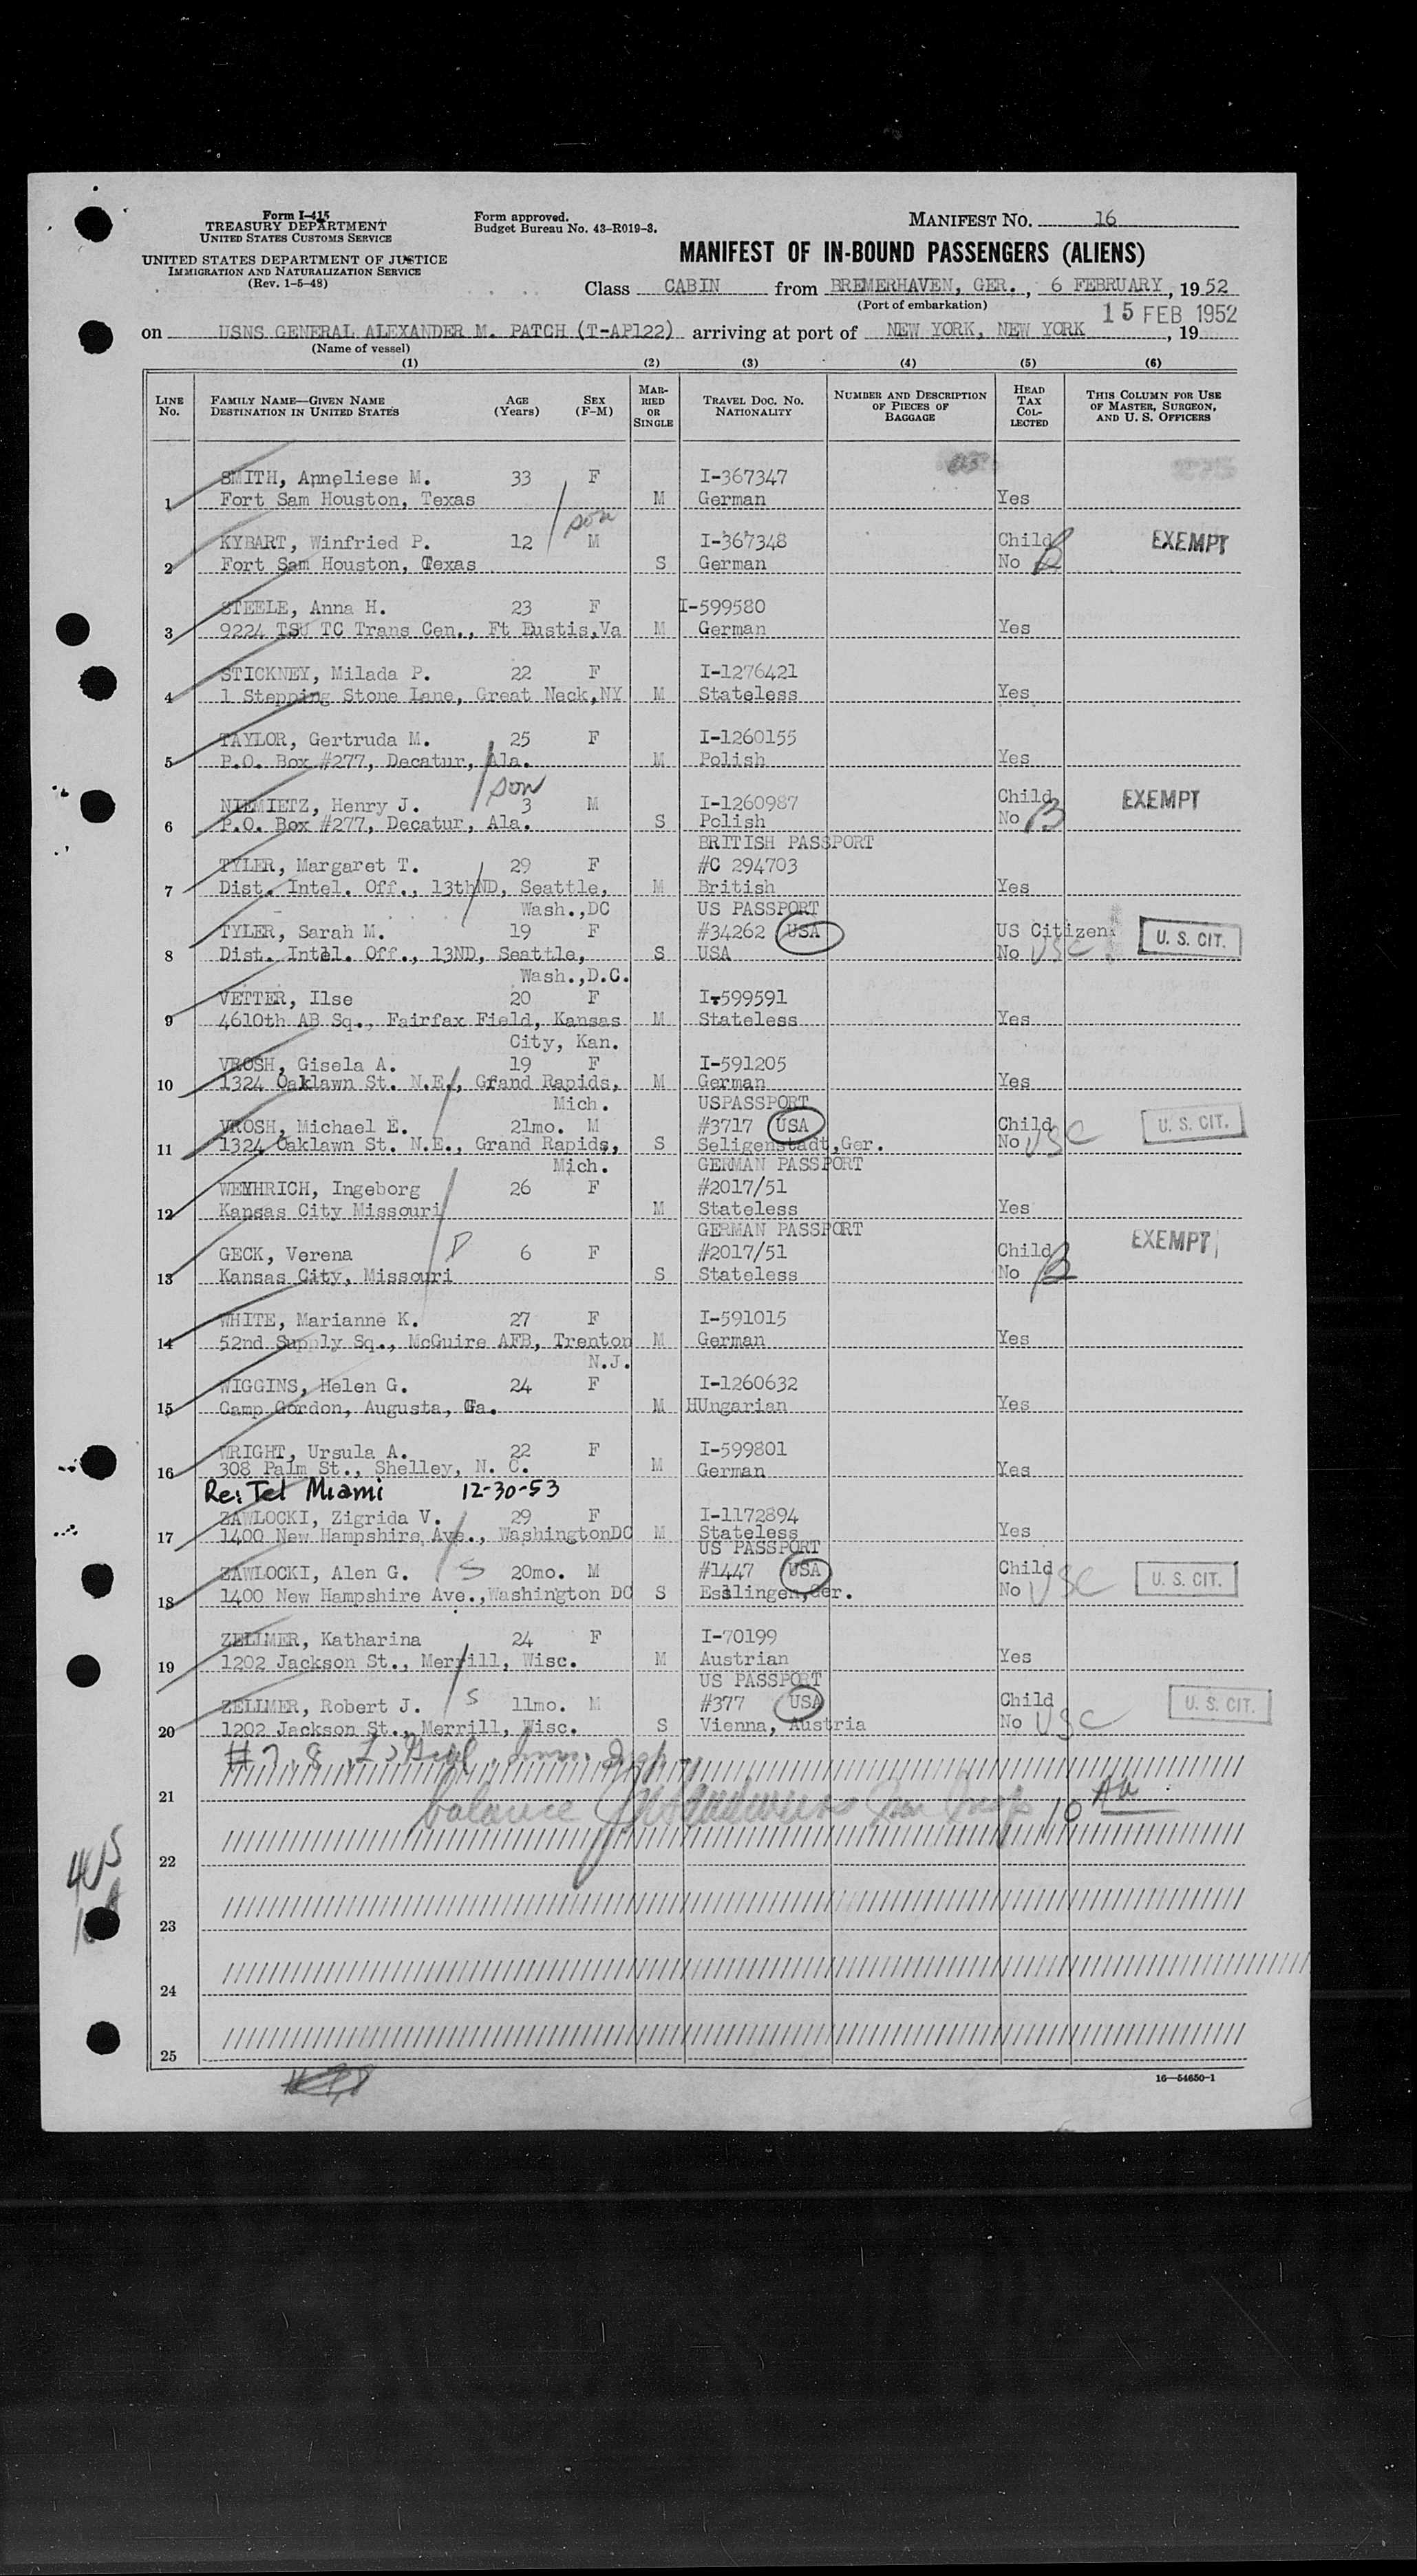 Form I-415
TREASURY DEPARTMENT
UNITED STATES CUSTOMS SERVICE
UNITED STATES DEPARTMENT OF JUSTICE
IMMIGRATION AND NATURALIZATION SERVICE
(Rev. 1-5-48)
Form approved.
Budget Bureau No. 43-R019-3.
MANIFEST NO. 16
MANIFEST OF IN-BOUND PASSENGERS (ALIENS)
Class CABIN from BREMERHAVEN, GER. , 6 FEBRUARY , 19 52
(Port of embarkation)
15 FEB 1952
on USNS GENERAL ALEXANDER M. PATCH (T-AP122) arriving at port of NEW YORK, NEW YORK , 19
(Name of vessel)
(1) (2) (3) (4) (5) (6)
LINE No. FAMILY NAME—GIVEN NAME DESTINATION IN UNITED STATES AGE (Years) SEX (F-M) MARRIED OR SINGLE TRAVEL DOC. NO. NATIONALITY NUMBER AND DESCRIPTION OF PIECES OF BAGGAGE HEAD TAX COLLECTED THIS COLUMN FOR USE OF MASTER, SURGEON, AND U. S. OFFICERS
SMITH, Anneliese M. 33 F I-367347
1 Fort Sam Houston, Texas M German Yes
son
KYBART, Winfried P. 12 M I-367348 Child EXEMPT
2 Fort Sam Houston, Texas S German No
STEELE, Anna H. 23 F I-599580
3 9224 TSU TC Trans Cen., Ft Eustis,Va M German Yes
STICKNEY, Milada P. 22 F I-1276421
4 1 Stepping Stone Lane, Great Neck,NY M Stateless Yes
TAYLOR, Gertruda M. 25 F I-1260155
5 P.O. Box #277, Decatur, Ala. M Polish Yes
son
NIEMIETZ, Henry J. 3 M I-1260987 Child EXEMPT
6 P.O. Box #277, Decatur, Ala. S Polish No B
BRITISH PASSPORT
TYLER, Margaret T. 29 F #C 294703
7 Dist. Intel. Off., 13thND, Seattle, M British Yes
Wash.,DC US PASSPORT
TYLER, Sarah M. 19 F #34262 USA US Citizen U. S. CIT.
8 Dist. Intel. Off., 13ND, Seattle, S USA No USC
Wash.,D.C.
VETTER, Ilse 20 F I-599591
9 4610th AB Sq., Fairfax Field, Kansas M Stateless Yes
City, Kan.
VROSH, Gisela A. 19 F I-591205
10 1324 Oaklawn St. N.E., Grand Rapids, M German Yes
Mich. USPASSPORT
VROSH, Michael E. 21mo. M #3717 USA Child U. S. CIT.
11 1324 Oaklawn St. N.E., Grand Rapids, S Seligenstadt,Ger. No USC
Mich. GERMAN PASSPORT
WEYHRICH, Ingeborg 26 F #2017/51
12 Kansas City Missouri M Stateless Yes
GERMAN PASSPORT
GECK, Verena D 6 F #2017/51 Child EXEMPT
13 Kansas City, Missouri S Stateless No B
WHITE, Marianne K. 27 F I-591015
14 52nd Supply Sq., McGuire AFB, Trenton M German Yes
N.J.
WIGGINS, Helen G. 24 F I-1260632
15 Camp Gordon, Augusta, Ga. M HUngarian Yes
WRIGHT, Ursula A. 22 F I-599801
16 308 Palm St., Shelley, N. C. M German Yes
Re: Tel Miami 12-30-53
ZAWLOCKI, Zigrida V. 29 F I-1172894
17 1400 New Hampshire Ave., WashingtonDC M Stateless Yes
US PASSPORT
ZAWLOCKI, Alen G. S 20mo. M #1447 USA Child U. S. CIT.
18 1400 New Hampshire Ave.,Washington DC S Esslingen,Ger. No USC
ZELLMER, Katharina 24 F I-70199
19 1202 Jackson St., Merrill, Wisc. M Austrian Yes
US PASSPORT
ZELLMER, Robert J. S 11mo. M #377 USA Child U. S. CIT.
20 1202 Jackson St., Merrill, Wisc. S Vienna, Austria No USC
# 7, 8
21
balance 10
22
23
24
25
16—54650-1